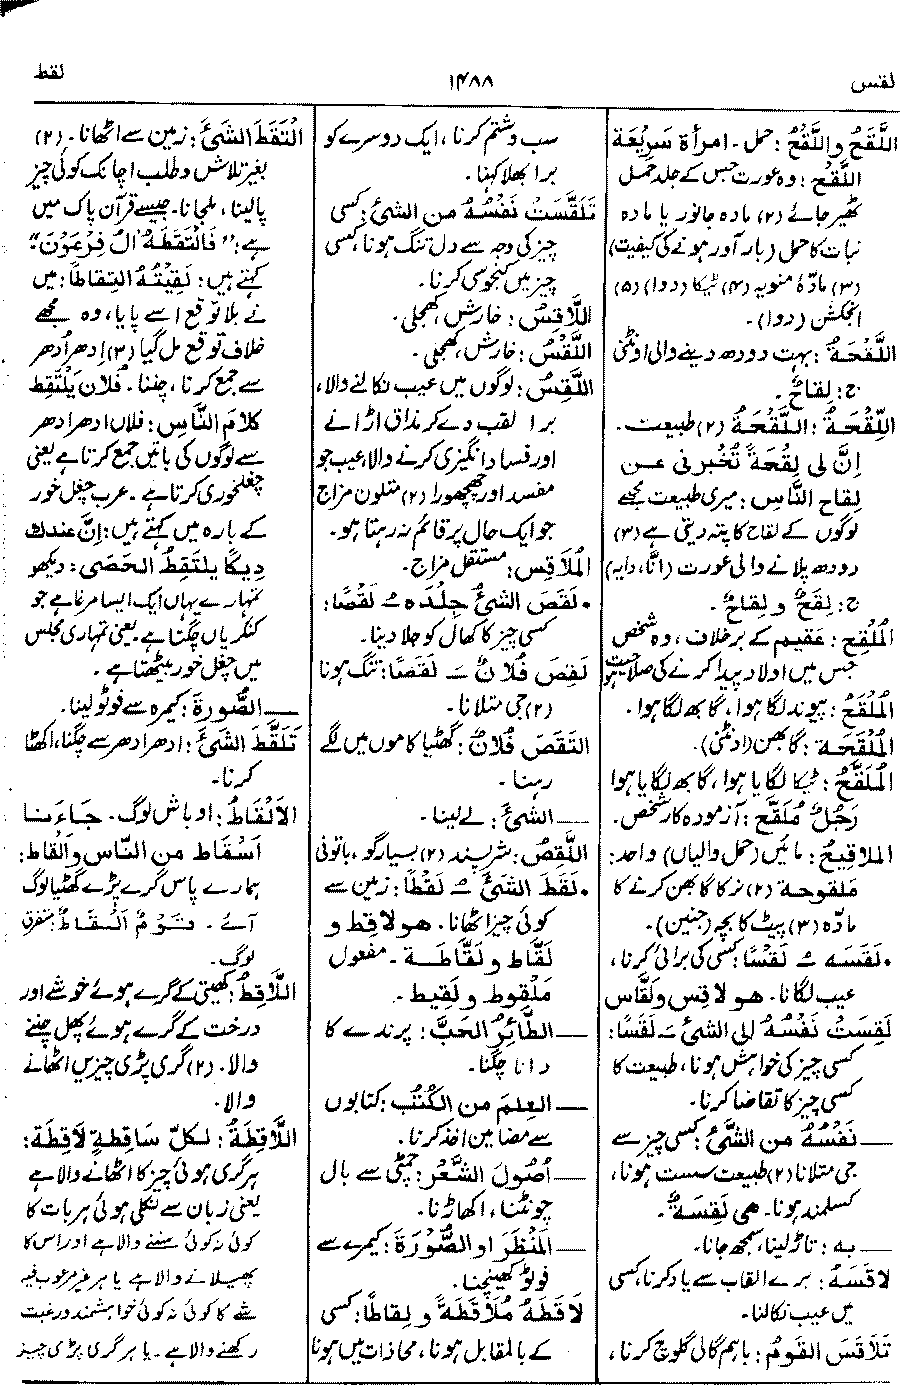 لقس
۱۴۸۸
لقط
اللَّقَحُ واللَّقْحُ: حمل۔ امرأة سَرِیْعَة
اللَّقْحِ: وہ عورت جس کے جلد حمل
ٹھیر جائے (۲) مادہ جانور یا مادہ
نبات کا حمل (بار آور ہونے کی کیفیت)
(۳) مادّہ منویہ (۴) ٹیکا (دوا) (۵)
انجکشن (دوا)۔
اللَّقْحَةُ: بہت دودھ دینے والی اونٹنی
ج: لِقاحٌ۔
اللِّقْحَةُ: اللَّقْحَةُ (۲) طبیعت۔
اِنَّ لی لِقْحَةً تُخْبِرنی عن
لِقاح النَّاس: میری طبیعت مجھے
لوگوں کے لقاح کا پتہ دیتی ہے (۳)
دودھ پلانے والی عورت (انّا، دایہ)
ج: لِقَحٌ و لِقاحٌ۔
المُلْقِح: عقیم کے برخلاف، وہ شخص
جس میں اولاد پیدا کرنے کی صلاحیت ہو
المُلْقَحُ: پیوند لگا ہوا، گابھ لگا ہوا۔
المُلْقَحَة: گابھن (اونٹنی)۔
المُلَقَّحُ: ٹیکا لگایا ہوا، گابھ لگایا ہوا
رَجُلٌ مُلَقَّح: آزمودہ کار شخص۔
الملاقیحُ: مائیں (حمل والیاں) واحد:
مَلقوحة (۲) نر کا گابھن کرنے کا
مادّہ (۳) پیٹ کا بچہ (جنین)۔
• لَقَسَه ُ لَقْسًا: کسی کی برائی کرنا،
عیب لگانا۔ هو لاقِس ولَقَّاس
لَقِسَتْ نَفْسُهُ الی الشئ َ لَقَسًا:
کسی چیز کی خواہش ہونا، طبیعت کا
کسی چیز کا تقاضا کرنا۔
— نَفْسُهُ من الشَّئ: کسی چیز سے
جی متلانا (۲) طبیعت سست ہونا،
کسلمند ہونا۔ هی لَقِسَةٌ۔
— به: تاڑ لینا، سمجھ جانا۔
لاقَسَهُ: برے القاب سے یاد کرنا، کسی
میں عیب نکالنا۔
تَلاقَسَ القَومُ: باہم گالی گلوچ کرنا،
سب و شتم کرنا، ایک دوسرے کو
برا بھلا کہنا۔
تَلَقَّسَتْ نَفْسُهُ من الشئ: کسی
چیز کی وجہ سے دل تنگ ہونا، کسی
چیز میں کنجوسی کرنا۔
اللَّاقِسُ: خارش، کھجلی۔
اللَّقْسُ: خارش، کھجلی۔
اللَّقِسُ: لوگوں میں عیب نکالنے والا،
برا لقب دے کر مذاق اڑانے
اور فساد انگیزی کرنے والا، عیب جو
مفسد اور چھچھورا (۲) متلون مزاج
جو ایک حال پر قائم نہ رہتا ہو۔
المُلَاقِس: مستقل مزاج۔
• لَقَصَ الشئُ جِلْدَه ُ لَقْصًا:
کسی چیز کا کھال کو جلا دینا۔
لَقِصَ فُلَانٌ َ لَقَصًا: تنگ ہونا
(۲) جی متلانا۔
التَقَصَ فُلانٌ: گھٹیا کاموں میں لگے
رہنا۔
— الشئَ: لے لینا۔
اللَّقِصُ: شرپسند (۲) بسیار گو، باتونی
• لَقَطَ الشئَ ُ لَقْطًا: زمین سے
کوئی چیز اٹھانا۔ هو لاقِط و
لَقَّاط و لَقَّاطة۔ مفعول
مَلْقوط و لَقیط۔
— الطَّائِرُ الحَبَّ: پرندے کا
دانا چگنا۔
— العِلمَ من الکُتُب: کتابوں
سے مضامین اخذ کرنا۔
— اُصُولَ الشَّعْر: چمٹی سے بال
چونٹنا، اکھاڑنا۔
— المَنْظَرَ او الصُّورَةَ: کیمرے سے
فوٹو کھینچنا۔
لَاقَطَهُ مُلَاقَطَةً و لِقاطًا: کسی
کے بالمقابل ہونا، محاذات میں ہونا
اِلْتَقَطَ الشَّئَ: زمین سے اٹھانا۔ (۲)
بغیر تلاش و طلب اچانک کوئی چیز
پالینا، ملجانا۔ جیسے قرآن پاک میں
ہے: "فَالْتَقَطَهُ اٰلُ فِرْعَوْنَ"
کہتے ہیں: لَقِیْتُهُ التِقاطًا: میں
نے بلا توقع اسے پایا، وہ مجھے
خلاف توقع مل گیا (۳) ادھر اُدھر
سے جمع کرنا، چننا۔ فُلَان یَلْتَقِط
کلامَ النَّاسِ: فلاں ادھر ادھر
سے لوگوں کی باتیں جمع کرتا ہے یعنی
چغلخوری کرتا ہے۔ عرب چغل خور
کے بارہ میں کہتے ہیں: اِنَّ عندك
دِیکًا یلتَقِطُ الحَصَی: دیکھو
تمہارے یہاں ایک ایسا مرغا ہے جو
کنکریاں چگتا ہے۔ یعنی تمہاری مجلس
میں چغل خور بیٹھتا ہے۔
— الصُّورةَ: کیمرہ سے فوٹو لینا۔
تَلَقَّطَ الشَّئَ: ادھر ادھر سے چگنا، اکٹھا
کرنا۔
الاَلْقَاطُ: اوباش لوگ۔ جَاءَنا
اَسْقَاط من النَّاس واَلْقَاط:
ہمارے پاس گرے پڑے گھٹیا لوگ
آئے۔ قَوْمٌ اَلْقَاطٌ: متفرق
لوگ۔
اللَّاقِطُ: کھیتی کے گرے ہوئے خوشے اور
درخت کے گرے ہوئے پھل چننے
والا۔ (۲) گری پڑی چیزیں اٹھانے
والا۔
اللَّاقِطَةُ: لکلِّ ساقِطةٍ لَاقِطَة:
ہر گری ہوئی چیز کا اٹھانے والا ہے
یعنی زبان سے نکلی ہوئی ہر بات کا
کوئی نہ کوئی سننے والا ہے اور اس کا
پھیلانے والا ہے یا ہر غیر مرغوب فیہ
شے کا کوئی نہ کوئی خواہشمند و رغبت
رکھنے والا ہے۔ یا ہر گری پڑی چیز